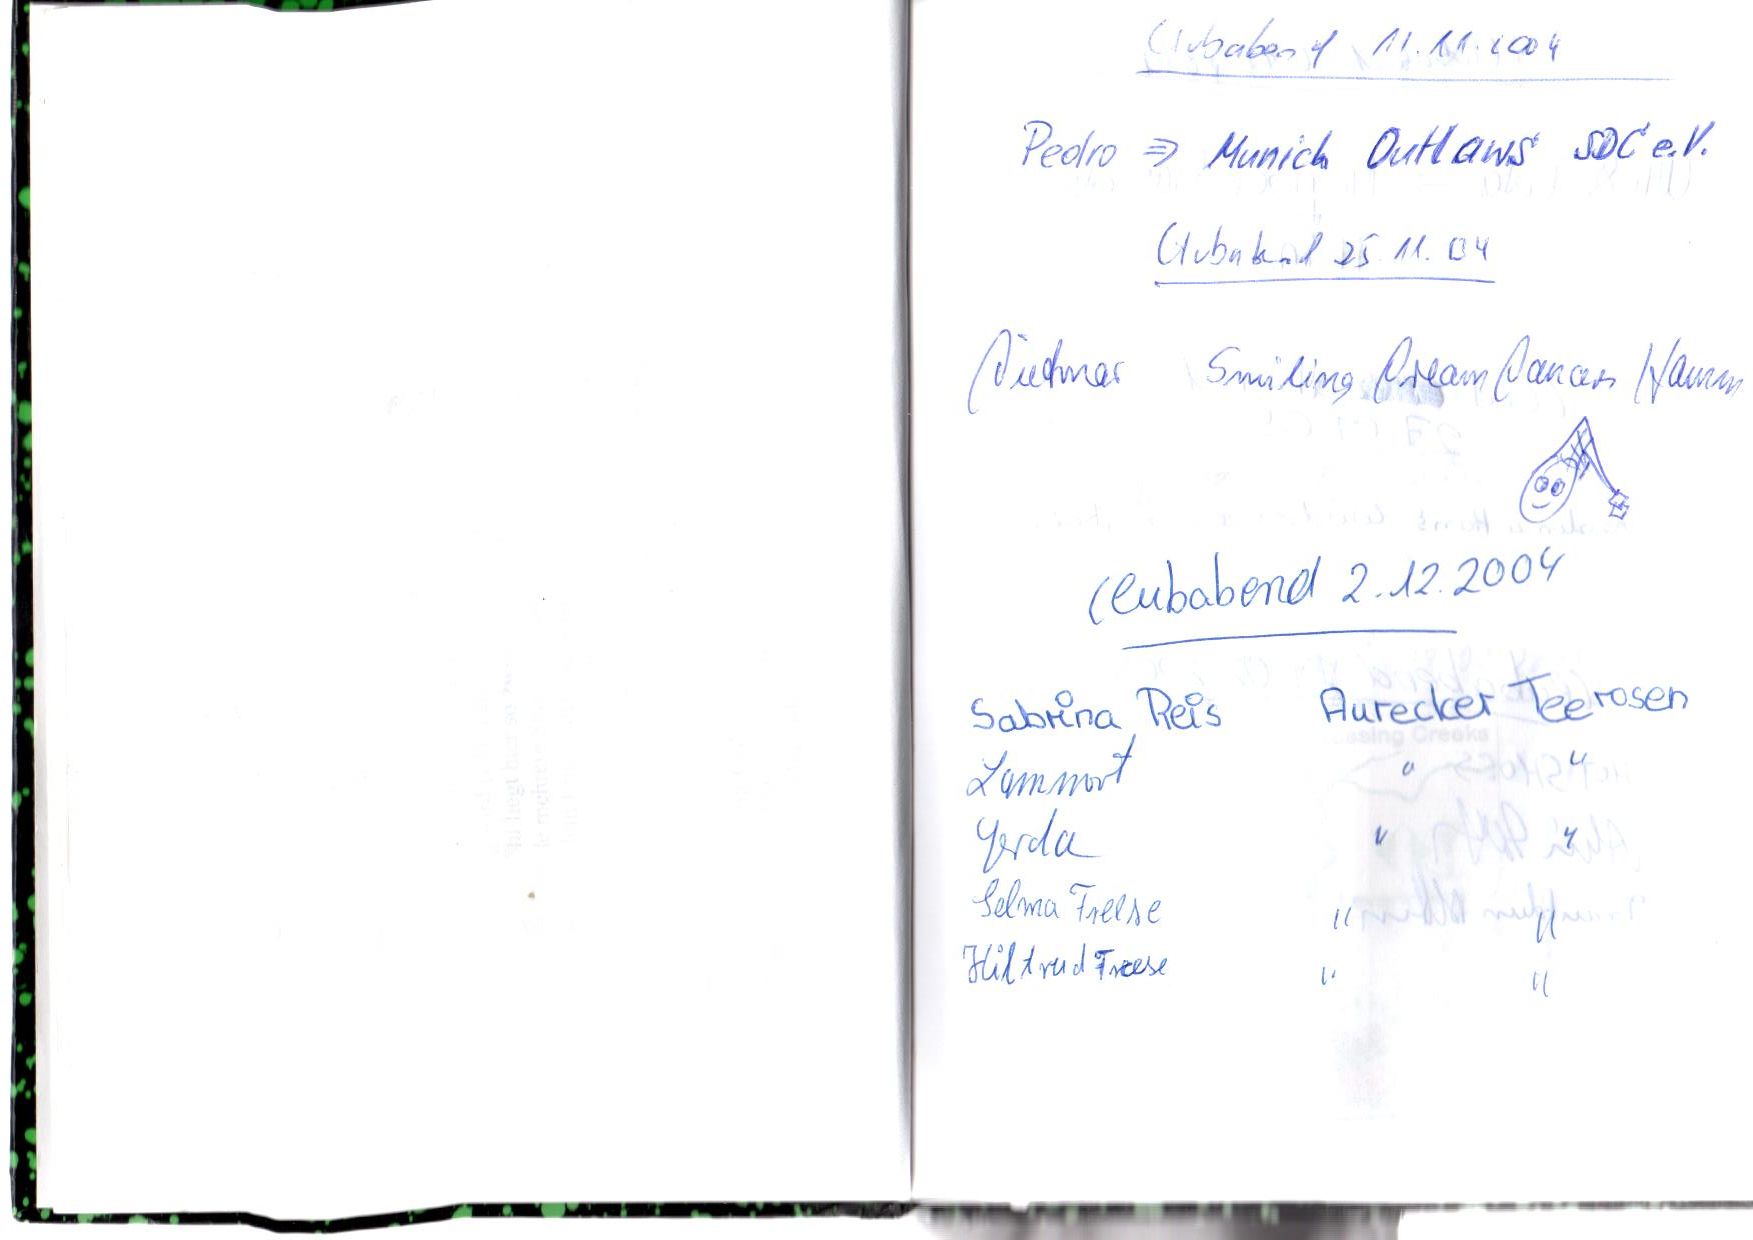 Clubabend 11.11.2004
Pedro ⇒ Munich Outlaws SDC e.V.
Clubabend 25.11.04
Dietmar Smiling Dream Dancers Hamm
Clubabend 2.12.2004
Sabrina Reis Aurecker Teerosen
Lammert " "
Gerda " "
Selma Freese " "
Hiltrud Freese " "